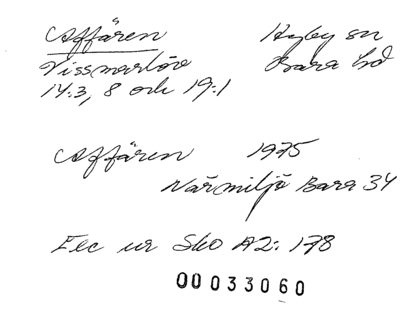 Affären Hyby sn
Vissmarlöv Bara hd
14:3, 8 och 19:1
Affären 1975
Närmiljö Bara 34
Exc ur Sko A2: 178
00033060